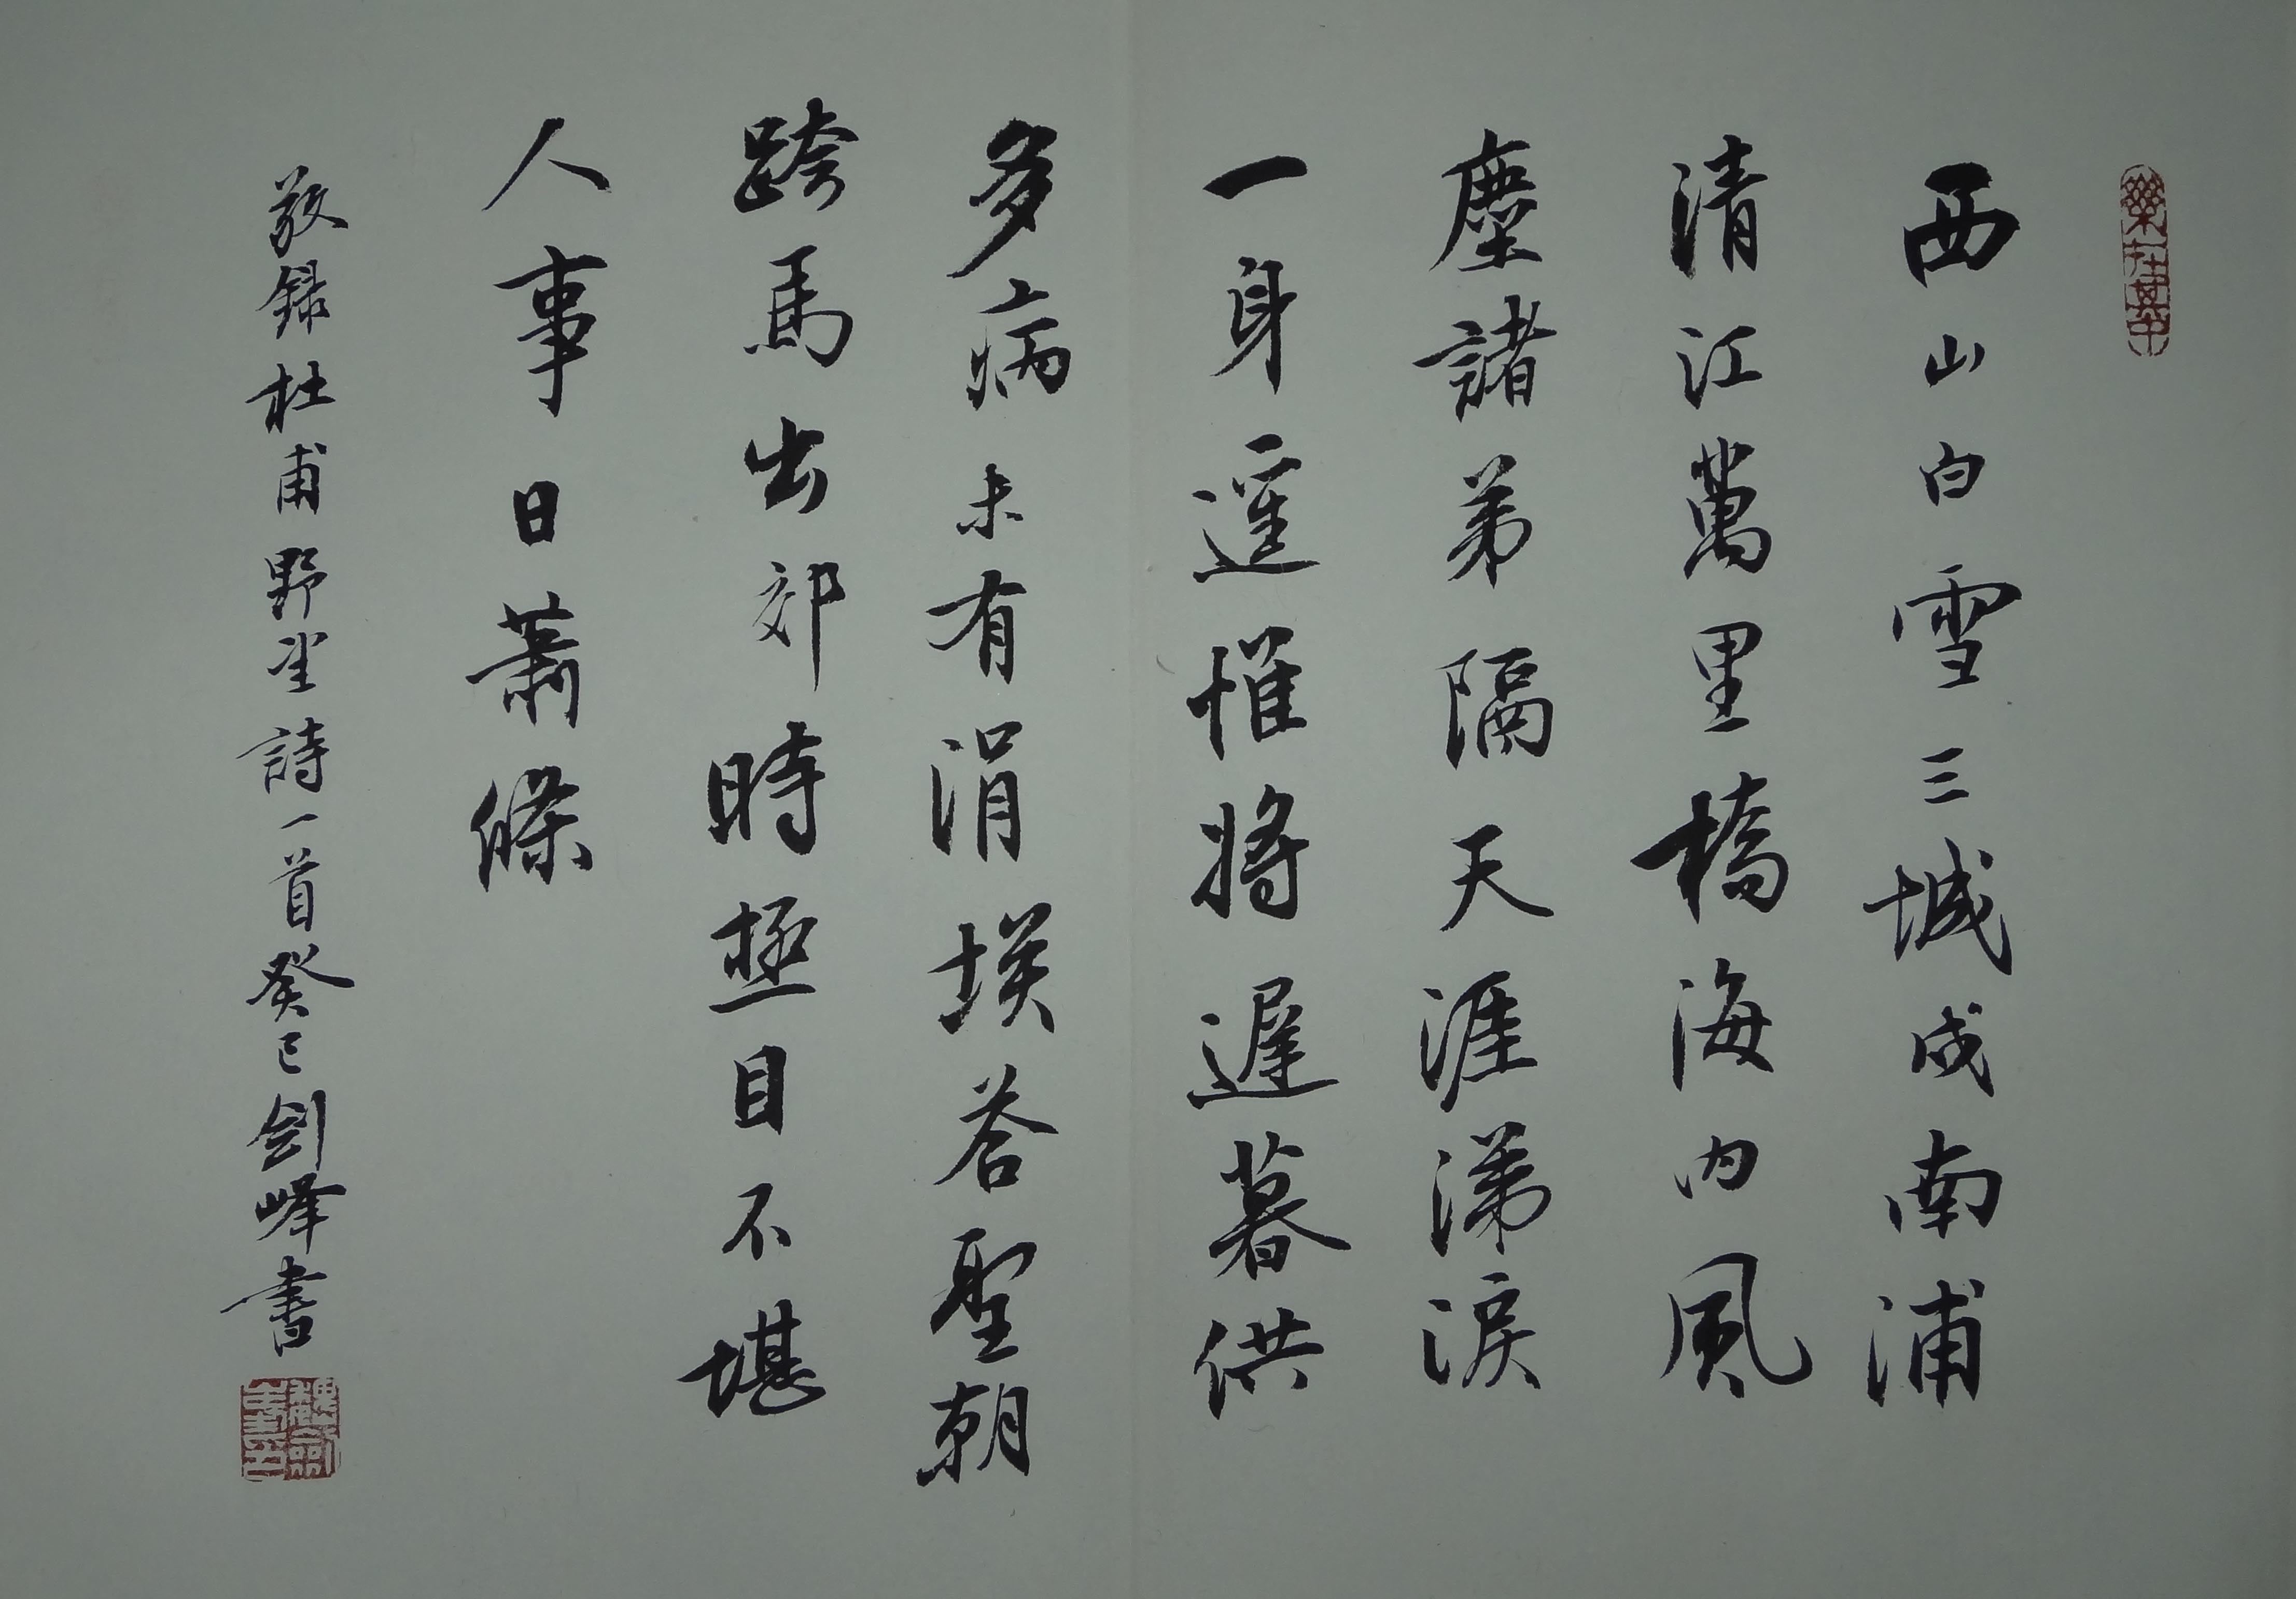 樂在其中
西山白雪三城戍南浦
清江萬里橋海内風
塵諸弟隔天涯涕淚
一身遥惟將遲暮供
多病未有涓埃答聖朝
跨馬出郊時極目不堪
人事日蕭條
敬録杜甫野望詩一首癸巳劍峰書